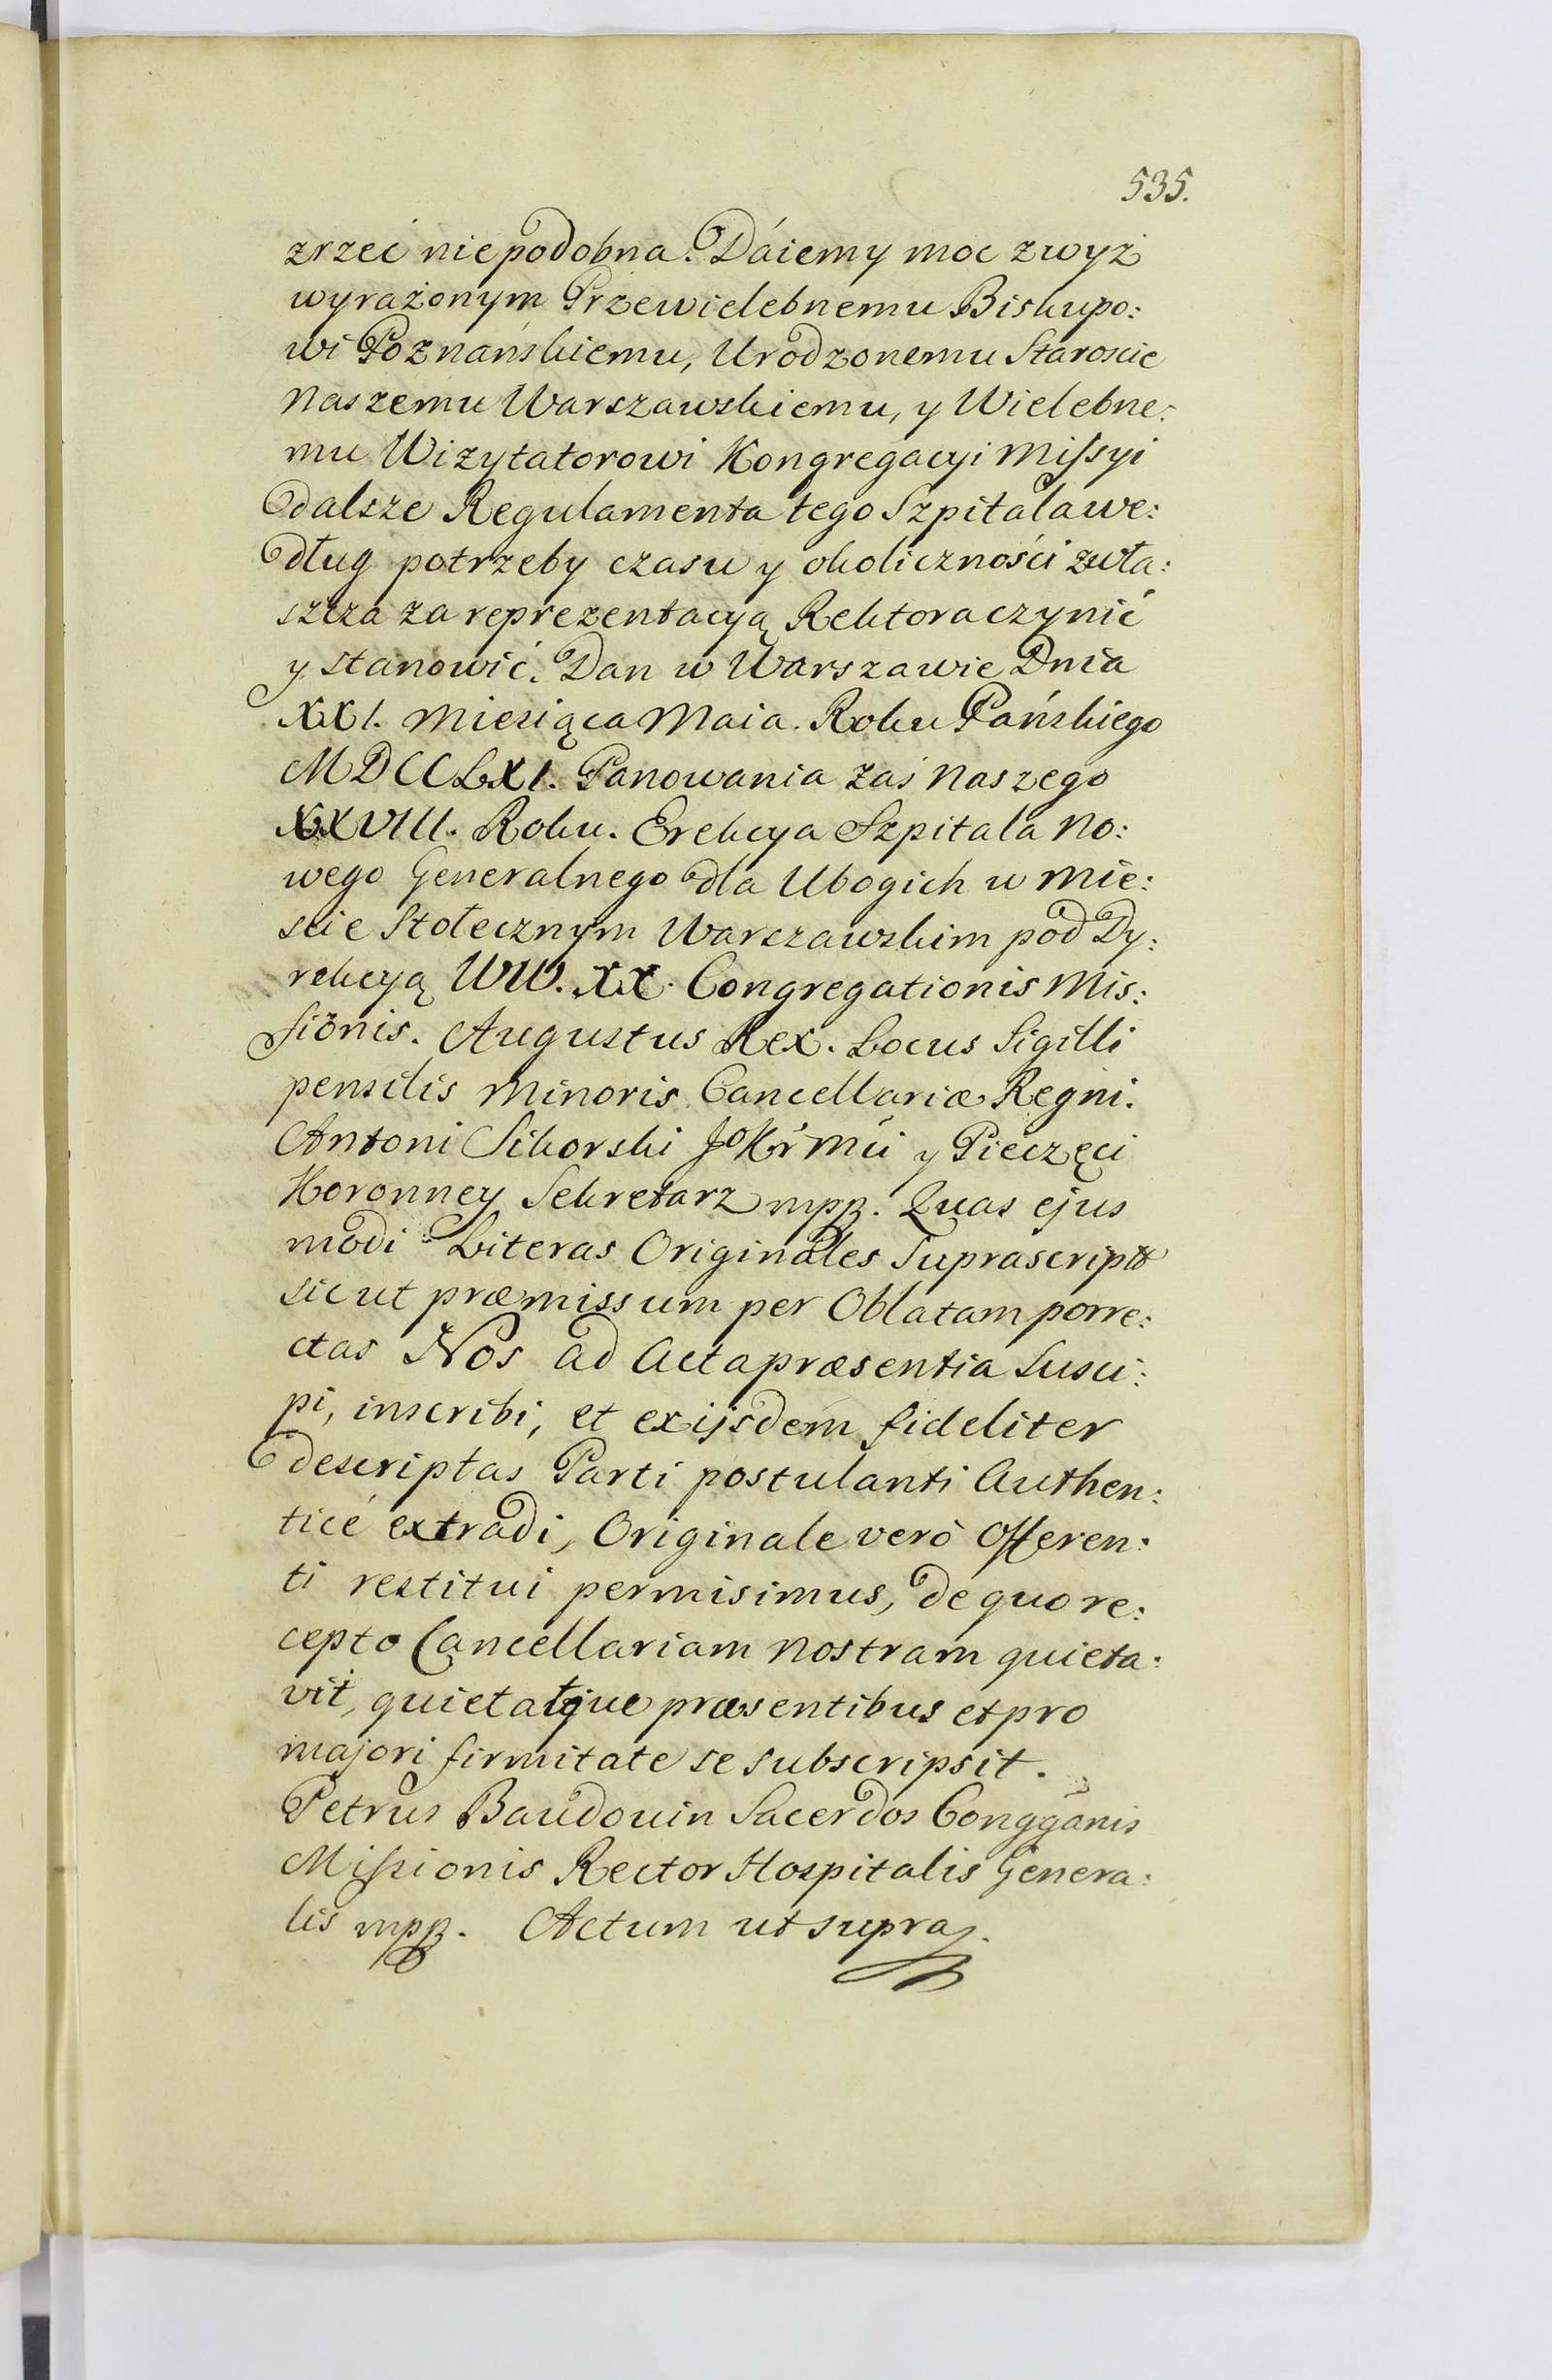 535.
zrzeć niepodobna. Dáiemy moc zwyż
wyrażonym Przewielebnemu Biskupo:
wi Poznańskiemu, Urodzonemu Staroscie
Naszemu Warszawskiemu, y Wielebne:
mu Wizytatorowi Kongregacyi Missyi
dalsze Regulamenta tego Szpitala we:
dług potrzeby czasu y okoliczności zwła:
szcza za reprezentacyą Rektora czynić
y stanowić. Dan w Warszawie Dnia
XXI. Miesiąca Maia. Roku Pańskiego
MDCCLXI. Panowania zaś Naszego
XXVIII. Roku. Erekcya Szpitala No:
wego Generalnego dla Ubogich w Mie:
scie Stołecznym Warszawskim pod Dy:
rekcyą WW. XX. Congregationis Mis:
sionis. Augustus Rex. Locus Sigilli
pensilis Minoris Cancellariæ Regni.
Antoni Sikorski JoKrMci y Pieczęci
Koronney Sekretarz mpp. Quas ejus
modi Literas Originales Suprascriptas
sicut præmissum per Oblatam porre:
ctas Nos ad Acta præsentia Susci:
pi, inscribi, et ex ijsdem fideliter
descriptas Parti postulanti Authen:
ticé extradi, Originale verò Offeren:
ti restitui permisimus, de quo re:
cepto Cancellariam nostram quieta:
vit, quietatque præsentibus et pro
majori firmitate se subscripsit.
Petrus Baudouin Sacerdos Congganis
Missionis Rector Hospitalis Genera:
lis mpp. Actum ut supra.